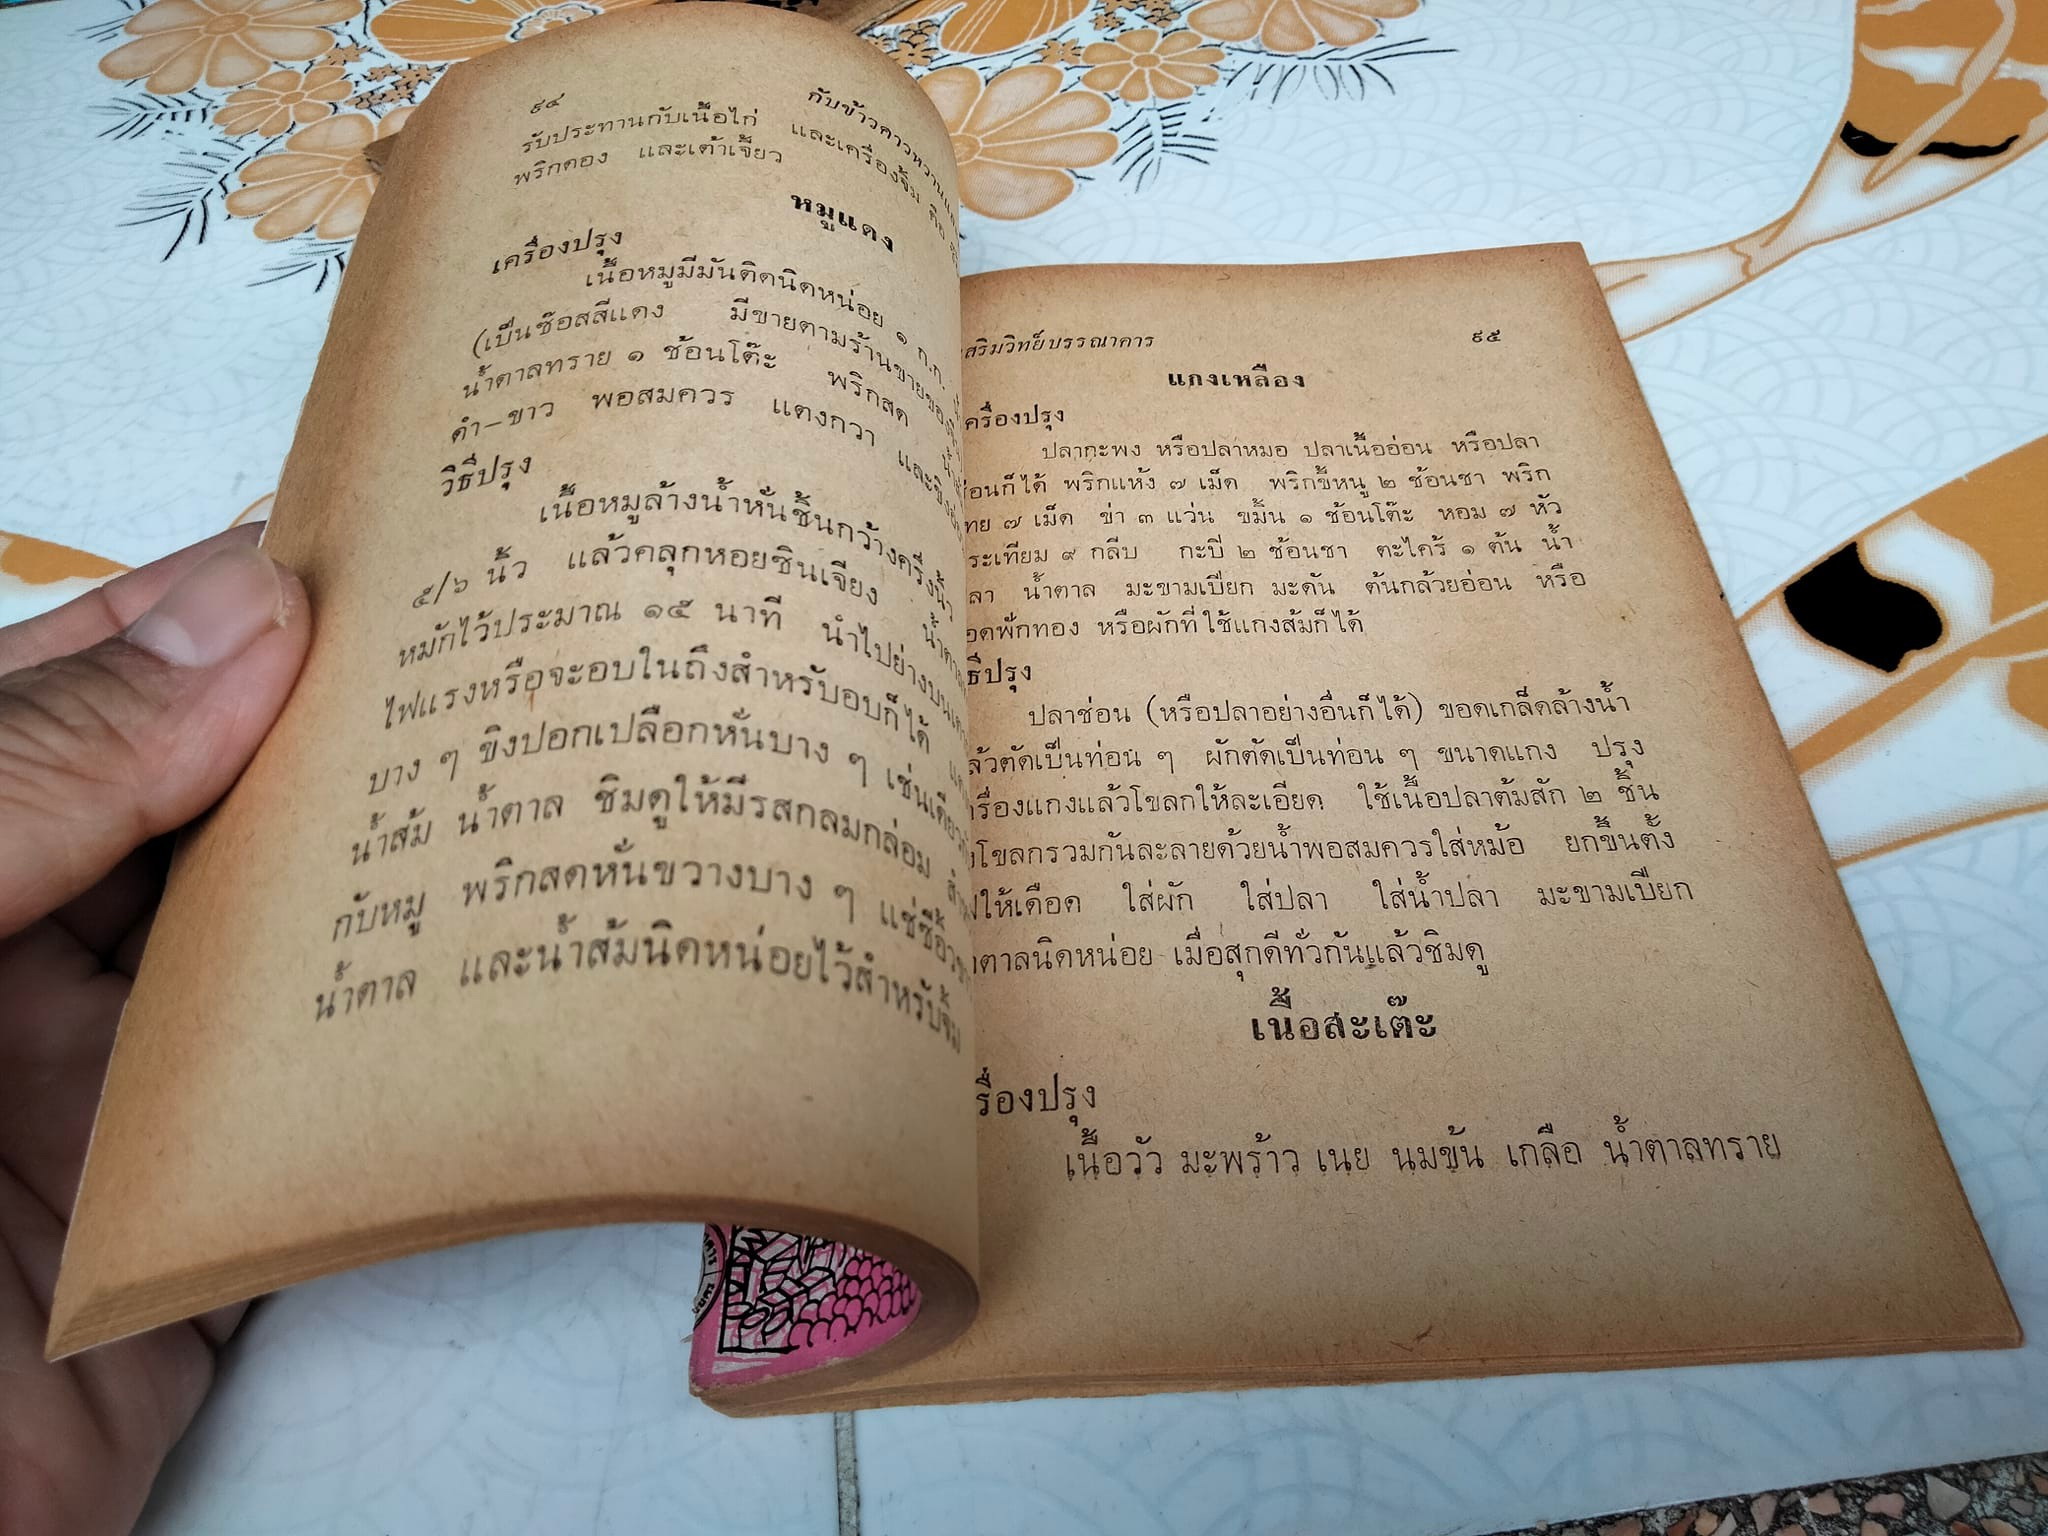 ๙๔
กับข้าวคาวหวานและ
รับประทานกับเนื้อไก่ และเครื่องจิ้ม คือ
พริกดอง และเต้าเจี้ยว
หมูแดง
เครื่องปรุง
เนื้อหมูมีมันติดนิดหน่อย ๑ ก.ก.
(เป็นซ๊อสสีแดง มีขายตามร้านขายของ
น้ำตาลทราย ๑ ช้อนโต๊ะ พริกสด
ดำ–ขาว พอสมควร แตงกวา และขิง
วิธีปรุง
เนื้อหมูล้างน้ำหั่นชิ้นกว้างครึ่งนิ้ว
๕/๖ นิ้ว แล้วคลุกหอยซินเจียง น้ำตาล
หมักไว้ประมาณ ๑๕ นาที นำไปย่างบนเตา
ไฟแรงหรือจะอบในถึงสำหรับอบก็ได้
บาง ๆ ขิงปอกเปลือกหั่นบาง ๆ เช่นเดียวกัน
น้ำส้ม น้ำตาล ชิมดูให้มีรสกลมกล่อม
กับหมู พริกสดหั่นขวางบาง ๆ แช่ซีอิ้ว
น้ำตาล และน้ำส้มนิดหน่อยไว้สำหรับจิ้ม
เสริมวิทย์บรรณาคาร ๙๕
แกงเหลือง
เครื่องปรุง
ปลากะพง หรือปลาหมอ ปลาเนื้ออ่อน หรือปลา
ช่อนก็ได้ พริกแห้ง ๗ เม็ด พริกขี้หนู ๒ ช้อนชา พริก
ไทย ๗ เม็ด ข่า ๓ แว่น ขมิ้น ๑ ช้อนโต๊ะ หอม ๗ หัว
กระเทียม ๙ กลีบ กะปิ ๒ ช้อนชา ตะไคร้ ๑ ต้น น้ำ
ปลา น้ำตาล มะขามเปียก มะดัน ต้นกล้วยอ่อน หรือ
ยอดฟักทอง หรือผักที่ใช้แกงส้มก็ได้
วิธีปรุง
ปลาช่อน (หรือปลาอย่างอื่นก็ได้) ขอดเกล็ดล้างน้ำ
แล้วตัดเป็นท่อน ๆ ผักตัดเป็นท่อน ๆ ขนาดแกง ปรุง
เครื่องแกงแล้วโขลกให้ละเอียด ใช้เนื้อปลาต้มสัก ๒ ชิ้น
ลงโขลกรวมกันละลายด้วยน้ำพอสมควรใส่หม้อ ยกขึ้นตั้ง
ไฟให้เดือด ใส่ผัก ใส่ปลา ใส่น้ำปลา มะขามเปียก
น้ำตาลนิดหน่อย เมื่อสุกดีทั่วกันแล้วชิมดู
เนื้อสะเต๊ะ
เครื่องปรุง
เนื้อวัว มะพร้าว เนย นมข้น เกลือ น้ำตาลทราย